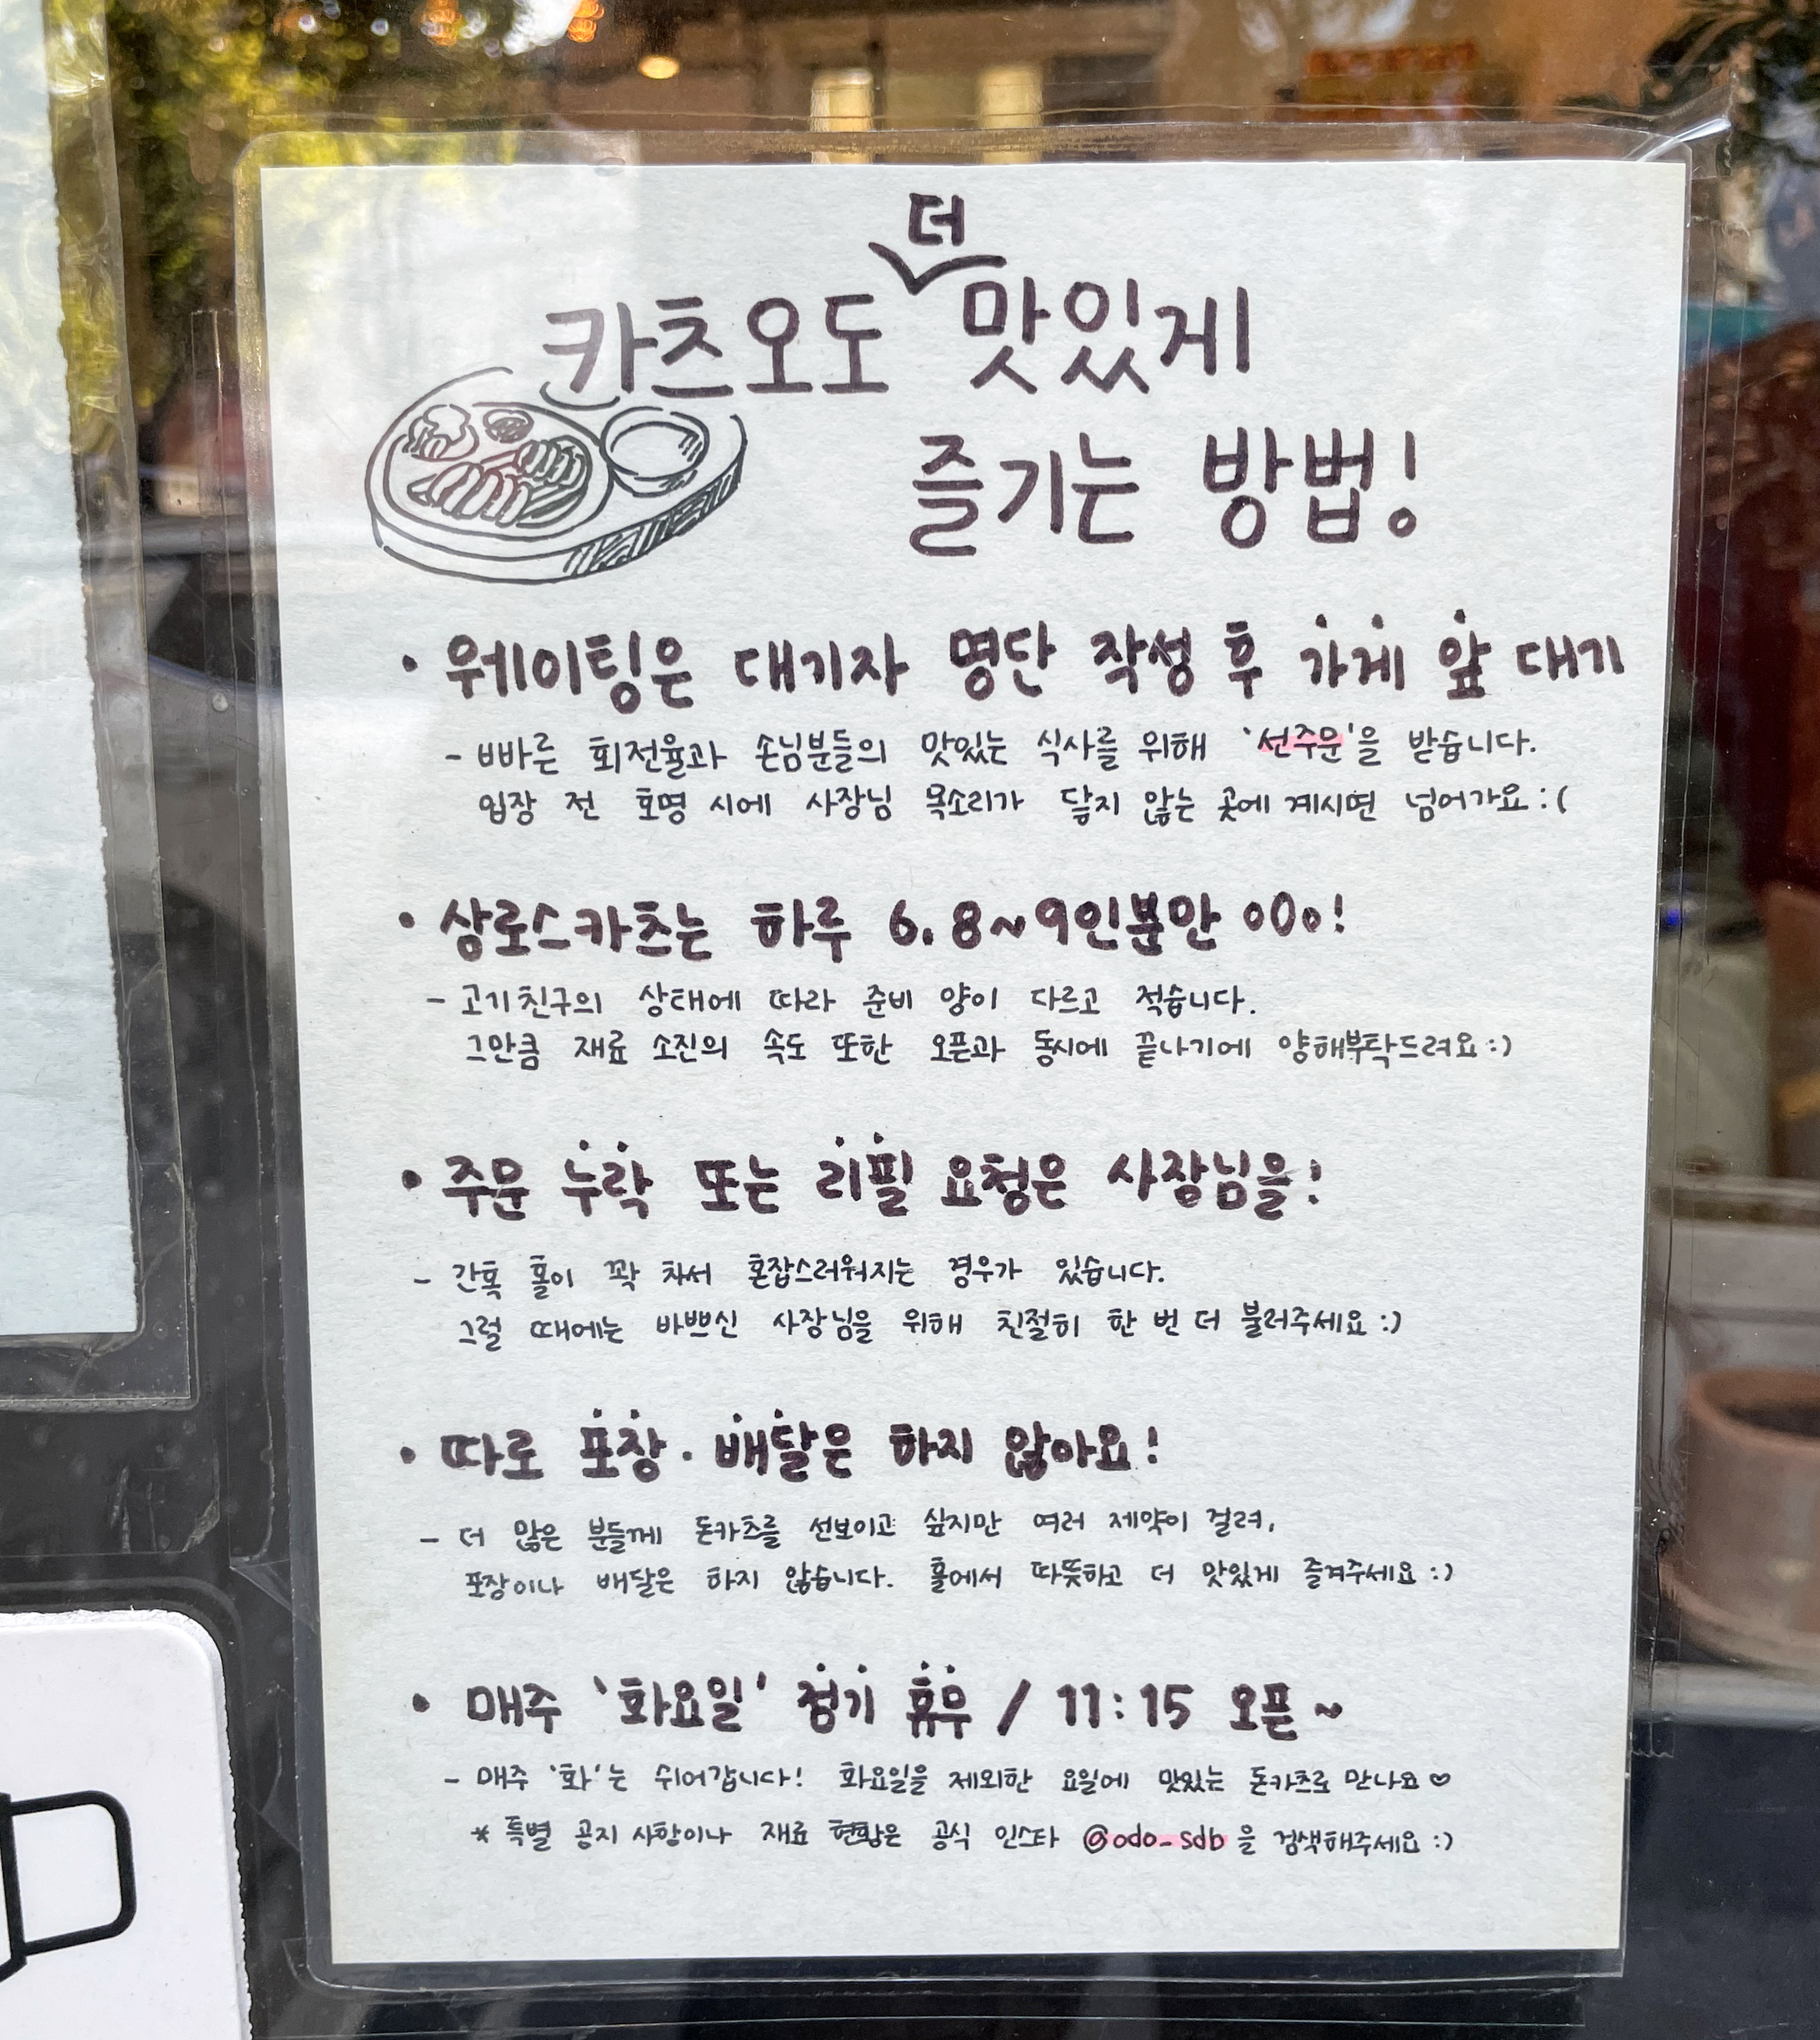 더
카츠오도 맛있게
즐기는 방법!
· 웨이팅은 대기자 명단 작성 후 가게 앞 대기
- 빠른 회전율과 손님분들의 맛있는 식사를 위해 '선주문'을 받습니다.
입장 전 호명 시에 사장님 목소리가 닿지 않는 곳에 계시면 넘어가요 :(
· 상로스카츠는 하루 6. 8~9인분만 o0o!
- 고기친구의 상태에 따라 준비 양이 다르고 적습니다.
그만큼 재료 소진의 속도 또한 오픈과 동시에 끝나기에 양해부탁드려요 :)
· 주문 누락 또는 리필 요청은 사장님을!
- 간혹 홀이 꽉 차서 혼잡스러워지는 경우가 있습니다.
그럴 때에는 바쁘신 사장님을 위해 친절히 한 번 더 불러주세요 :)
· 따로 포장 · 배달은 하지 않아요!
- 더 많은 분들께 돈카츠를 선보이고 싶지만 여러 제약이 걸려,
포장이나 배달은 하지 않습니다. 홀에서 따뜻하고 더 맛있게 즐겨주세요 :)
· 매주 '화요일' 정기 휴무 / 11:15 오픈~
- 매주 '화'는 쉬어갑니다! 화요일을 제외한 요일에 맛있는 돈카츠로 만나요 ♡
* 특별 공지 사항이나 재료 현황은 공식 인스타 @odo_sdb 을 검색해주세요 :)